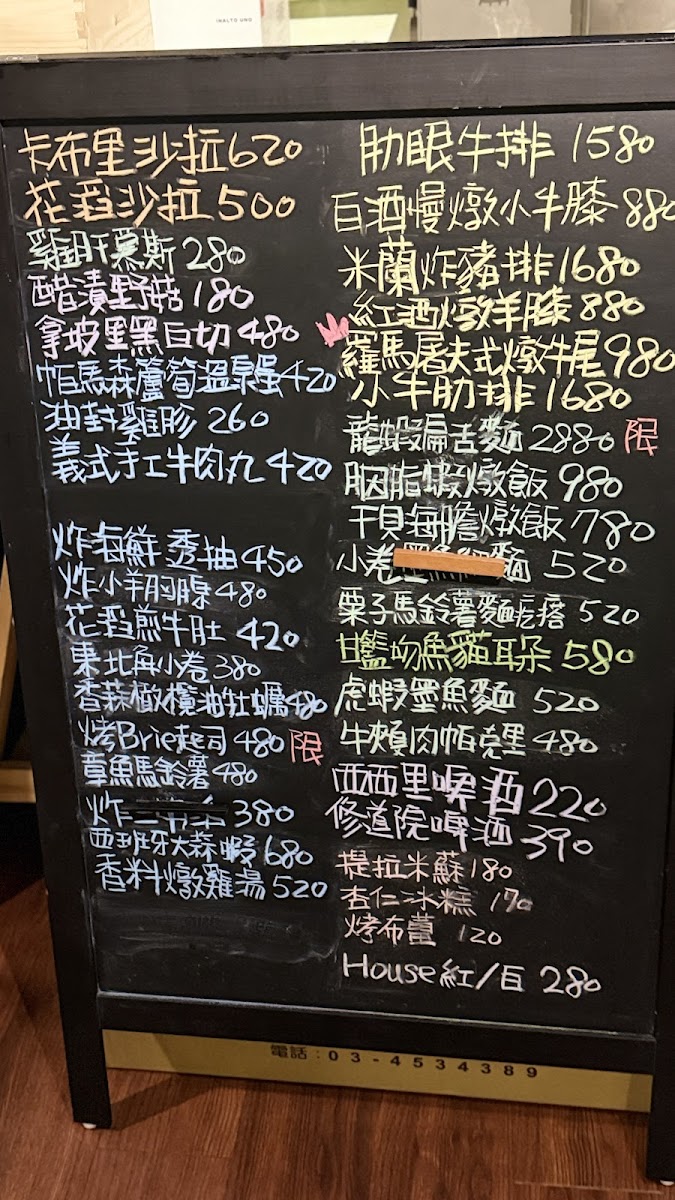 INALTO UNO
卡布里沙拉620
花翡沙拉500
雞肝慕斯280
醋漬野菇180
拿坡里黑白切480
帕馬森蘆筍溫泉蛋420
油封雞胗260
義式手工牛肉丸420
炸海鮮透抽450
炸小羊胸腺480
花翡煎牛肚420
東北角小卷380
香蒜橄欖油牡蠣480
烤Brie起司480限
章魚馬鈴薯480
炸 380
西班牙大蒜蝦680
香料燉雞湯520
肋眼牛排1580
白酒慢燉小牛膝880
米蘭炸豬排1680
紅酒燉羊膝880
羅馬屠夫式燉牛尾980
小牛肋排1680
龍蝦扁舌麵2880限
胭脂蝦燉飯980
干貝海膽燉飯780
小卷 麵520
栗子馬鈴薯麵疙瘩520
魩魚貓耳朵580
虎蝦墨魚麵520
牛頰肉帕克里480
西西里啤酒220
修道院啤酒390
提拉米蘇180
杏仁冰糕170
烤布蕾120
House紅/白280
電話:03-4534389